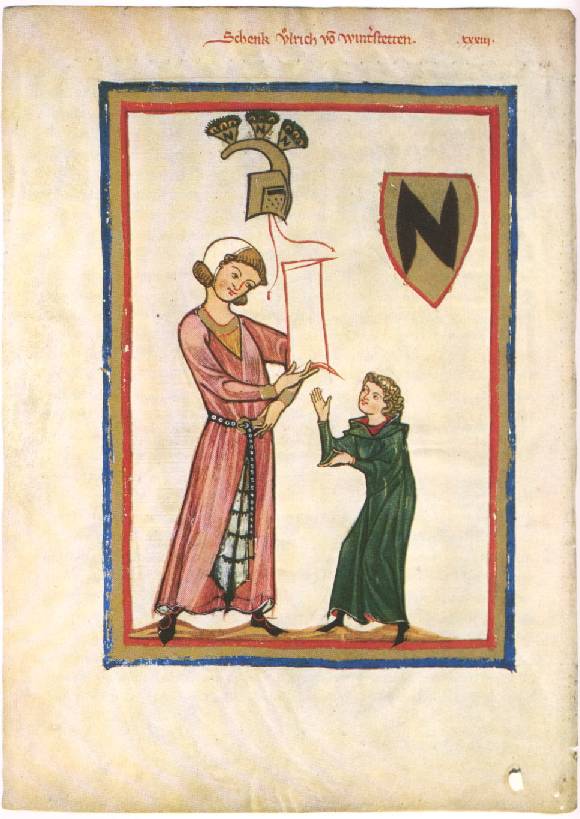 Schenk Vͦlrich vō Wint᾽stetten. .xxxiii.
N N N
N